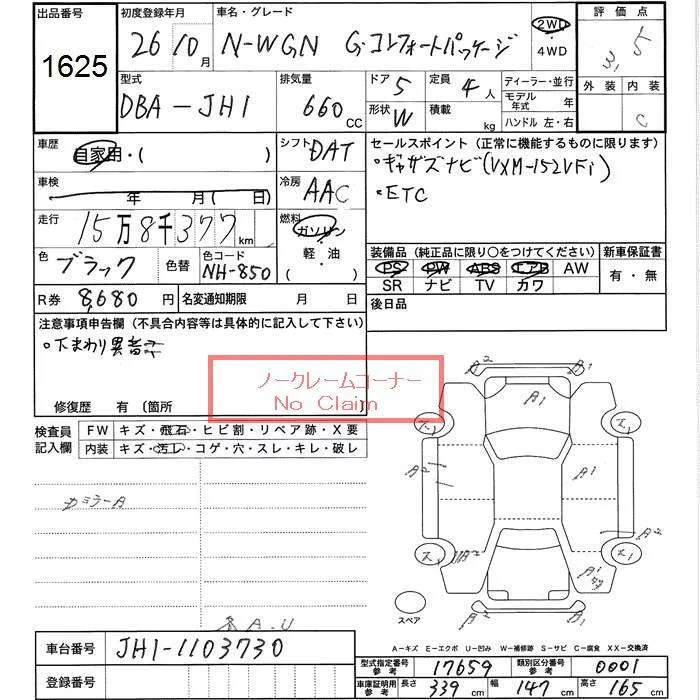 出品番号 初度登録年月 車名・グレード 2WD 評価点
1625 26 10月 N-WGN G・コンフォートパッケージ 4WD 5
型式 排気量 ドア 5 定員 4人 ディーラー・並行 外装 内装
DBA-JH1 660 CC 形状 W 積載 kg モデル年式 年 C
ハンドル 左・右
車歴 自家用・( ) シフト DAT セールスポイント (正常に機能するものに限ります)
・ギャザズナビ(VXM-152VFi)
車検 年 月(日) 冷房 AAC ・ETC
走行 15万8千377km 燃料 ガソリン
軽・油
( )
装備品 (純正品に限り〇をつけてください) 新車保証書
色 ブラック 色替 色コード NH-850 PS PW ABS エアB AW 有・無
SR ナビ TV カワ
R券 8,680円 名変通知期限 月 日 後日品
注意事項申告欄 (不具合内容等は具体的に記入して下さい)
・下まわり異音
ノークレームコーナー
No Claim
修復歴 有〔箇所 〕
検査員記入欄 FW キズ・飛石・ヒビ割・リペア跡・X要
内装 キズ・汚レ・コゲ・穴・スレ・キレ・破レ
A2 A1
A1
A2 A1
A2
A2 A1
スペア
A・U
A2 A1
車台番号 JH1-1103730
A-キズ E-エクボ U-凹み W-補修跡 S-サビ C-腐食 XX-交換済
登録番号
型式指定番号 参考 17659 類別区分番号 参考 0001
車庫証明用 参考 長さ 339 cm 幅 147 cm 高さ 165 cm